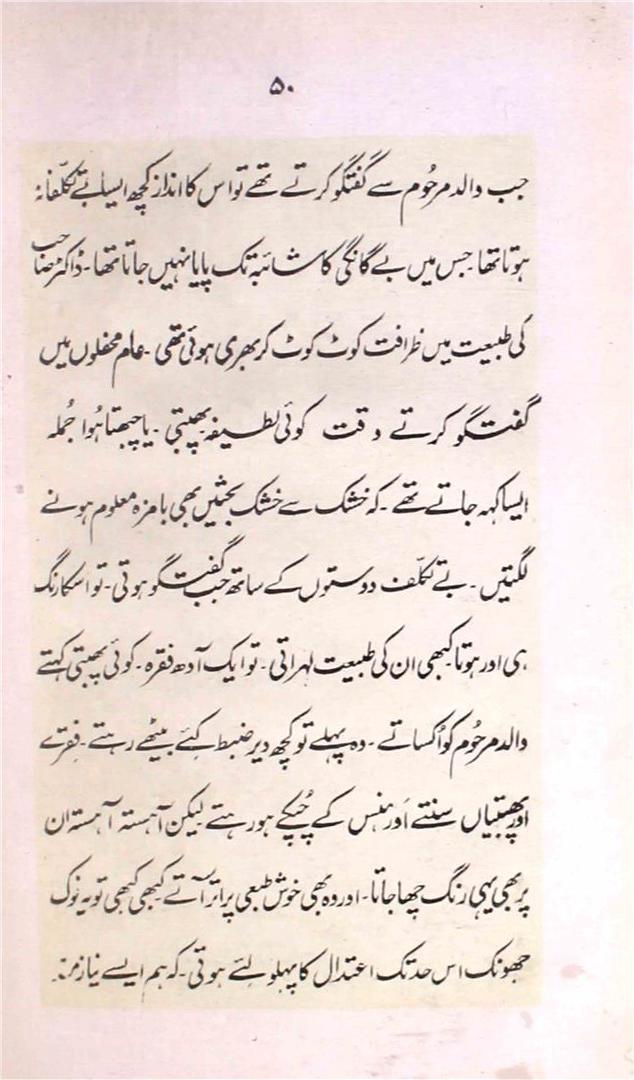 ۵۰
جب والد مرحُوم سے گفتگو کرتے تھے تو اس کا انداز کچھ ایسا بے تکلّفانہ
ہوتا تھا جس میں بے گانگی کا شائبہ تک پایا نہیں جاتا تھا۔ ڈاکٹر صاحب
کی طبیعت میں ظرافت کوٹ کوٹ کر بھری ہوئی تھی۔ عام محفلوں میں
گفتگو کرتے وقت کوئی لطیفہ پھبتی۔ یا چبھتا ہُوا جُملہ
ایسا کہہ جاتے تھے۔ کہ خشک سے خشک بحثیں بھی بامزہ معلوم ہونے
لگتیں۔ بے تکلّف دوستوں کے ساتھ جب گفتگو ہوتی۔ تو اسکا رنگ
ہی اور ہوتا کبھی ان کی طبیعت لہراتی۔ تو ایک آدھ فقرہ۔ کوئی پھبتی کہتے
والد مرحُوم کو اُکساتے۔ وہ پہلے تو کچھ دیر ضبط کئے بیٹھے رہتے۔ فقرے
اور پھبتیاں سنتے اَور ہنس کے چُپکے ہو رہتے لیکن آہستہ آہستہ ان
پر بھی یہی رنگ چھا جاتا۔ اور وہ بھی خوش طبعی پر اتر آتے کبھی کبھی تو یہ نوک
جھونک اس حد تک اعتدال کا پہلو لئے ہوتی۔ کہ ہم ایسے نیازمند